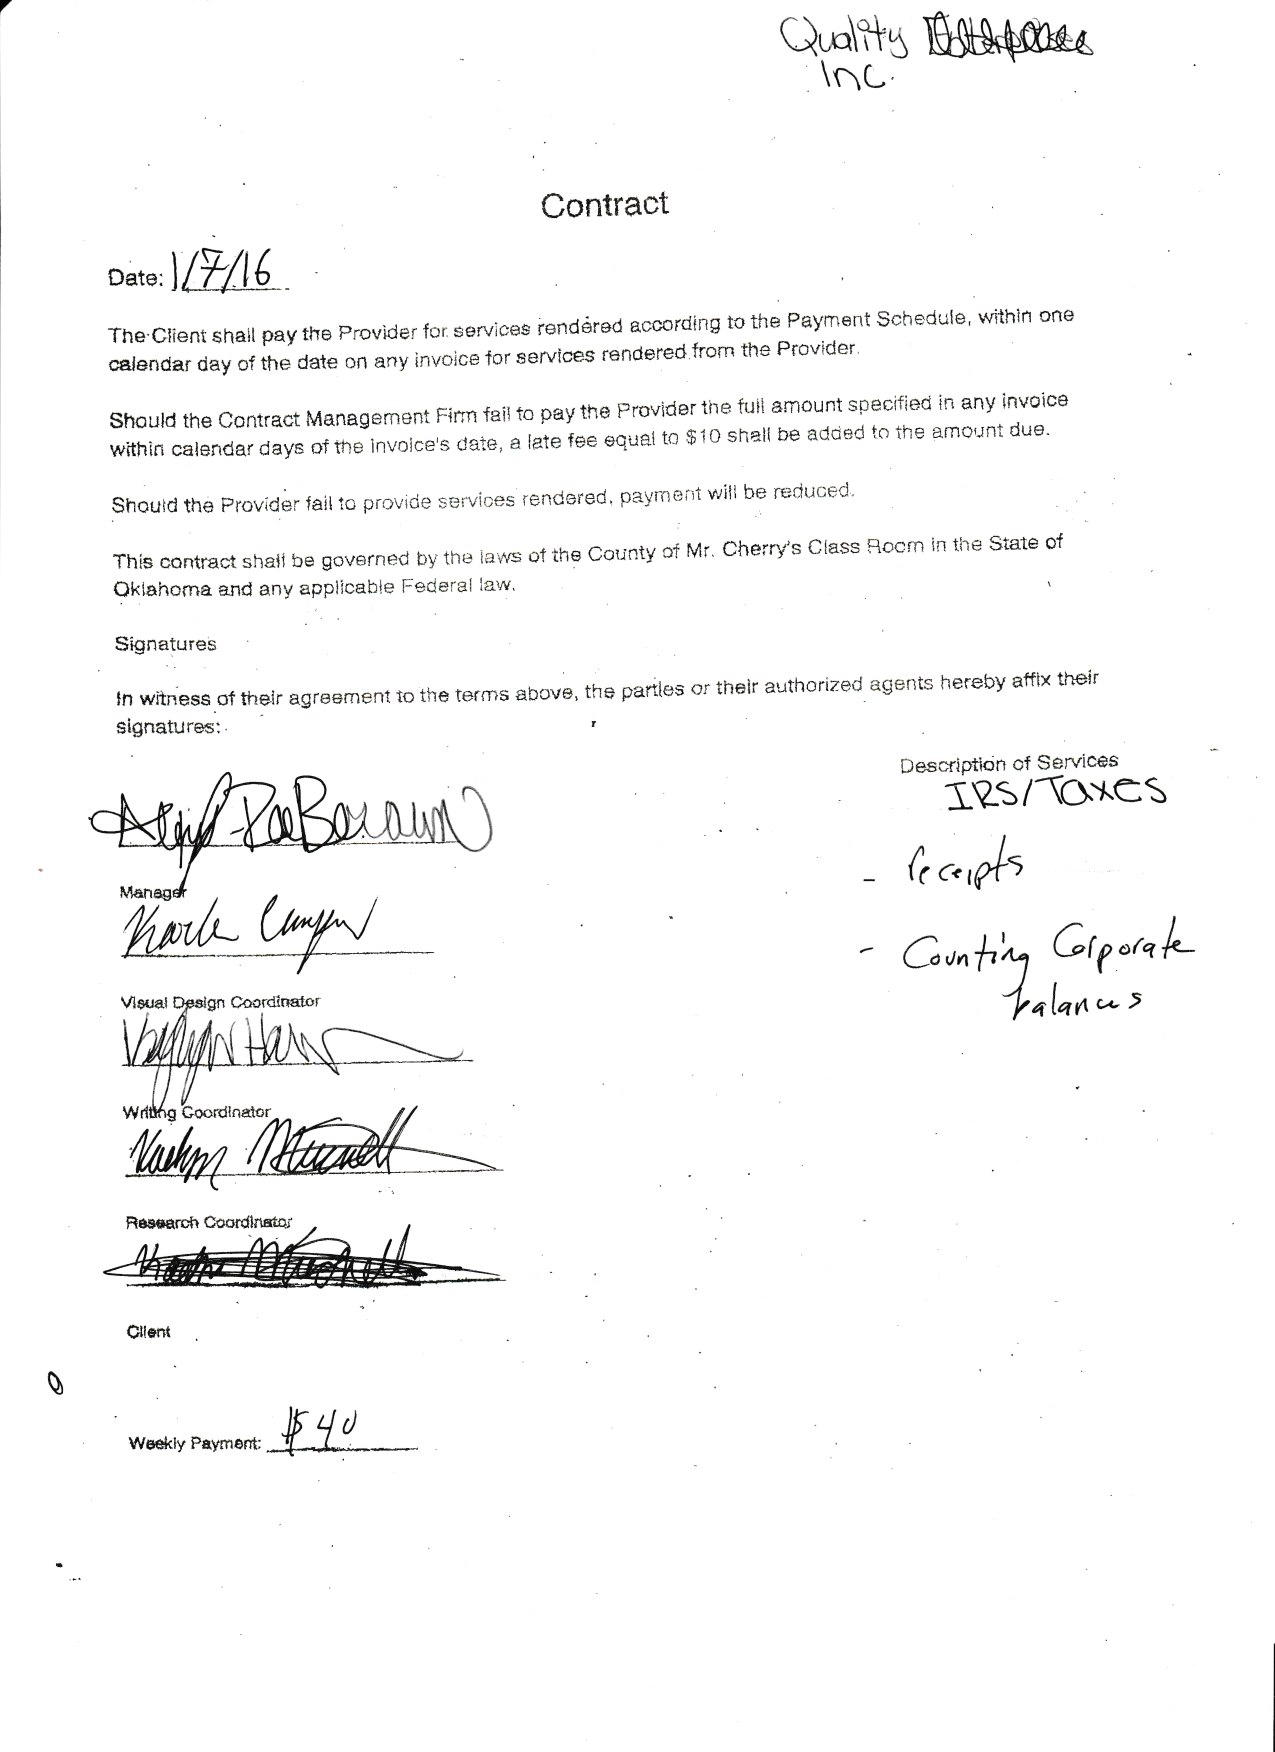 Quality
Inc.
Contract
Date: 1/7/16
The Client shall pay the Provider for services rendered according to the Payment Schedule, within one
calendar day of the date on any invoice for services rendered from the Provider.
Should the Contract Management Firm fail to pay the Provider the full amount specified in any invoice
within calendar days of the invoice's date, a late fee equal to $10 shall be added to the amount due.
Should the Provider fail to provide services rendered, payment will be reduced.
This contract shall be governed by the laws of the County of Mr. Cherry's Class Room in the State of
Oklahoma and any applicable Federal law.
Signatures
In witness of their agreement to the terms above, the parties or their authorized agents hereby affix their
signatures:
Description of Services
IRS/Taxes
- receipts
- Counting Corporate
balances
Manager
Visual Design Coordinator
Writing Coordinator
Research Coordinator
Client
Weekly Payment: $40